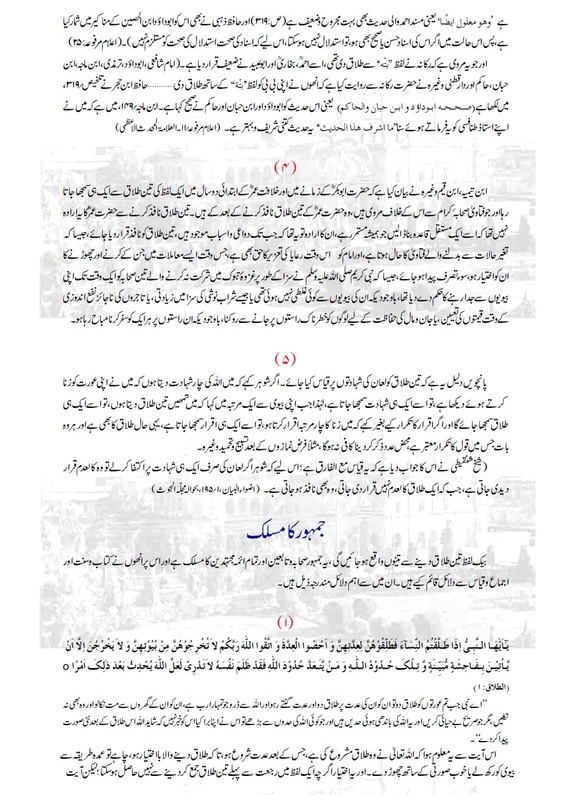 ہے ”وهو معلول ايضًا“ یعنی مسند احمد والی حدیث بھی بہت مجروح وضعیف ہے (ص:۳۱۹) اور حافظ ذہبی نے بھی اس کو ابوداؤد ابن الحصین کے مناکیر میں شمار کیا
ہے، پس اس حالت میں اگر اس کی اسناد حسن یا صحیح بھی ہو، تو استدلال نہیں ہوسکتا، اس لیے کہ اسناد کی صحت استدلال کی صحت کو مستلزم نہیں)۔ (اعلام مرفوعہ:۲۵)
اور جو یہ مروی ہے کہ رکانہ نے لفظ ”بتہ“ سے طلاق دی تھی، اسے احمدؒ، بخاریؒ اور ابوعبید نے ضعیف قرار دیا ہے۔ (امام شافعی، ابوداؤد، ترمذی، ابن ماجہ، ابن
حبان، حاکم اور دارقطنی وغیرہ نے حضرت رکانہ سے روایت کیا ہے کہ انھوں نے اپنی بی بی کو لفظ ”بتہ“ کے ساتھ طلاق دی ............ حافظ ابن حجر نے تلخیص،۳۱۹،
میں لکھا ہے (صححه ابوداؤد و ابن حبان والحاكم) یعنی اس حدیث کو ابوداؤد اور ابن حبان اور حاکم نے صحیح کہا ہے۔ ابن ماجہ،۱۴۹، میں ہے کہ میں نے
اپنے استاذ طنافسی کو یہ فرماتے ہوئے سنا ”ما اشرف هذا الحديث“ یہ حدیث کتنی شریف و بہتر ہے۔ (اعلام مرفوعہ،۱۱- العلامۃ المحدث الاعظمی)
(۴)
ابن تیمیہ، ابن قیم وغیرہ نے بیان کیا ہے کہ حضرت ابوبکرؓ کے زمانے میں اور خلافت عمرؓ کے ابتدائی دو سال میں ایک لفظ کی تین طلاق سے ایک ہی سمجھا جاتا
رہا اور جو فتاویٰ صحابہ کرام سے اس کے خلاف مروی ہیں، وہ حضرت عمرؓ کے تین طلاق نافذ کرنے کے بعد کے ہیں۔ تین طلاق نافذ کرنے سے حضرت عمرؓ کا یہ ارادہ
نہیں تھا کہ اسے ایک مستقل قاعدہ بنا ڈالیں جو ہمیشہ مستمر رہے، ان کا ارادہ تو یہ تھا کہ جب تک دواعی واسباب موجود ہیں، تین طلاق کو نافذ قرار دیا جائے، جیسا کہ
تغیر حالات سے بدلنے والے فتاویٰ کا حال ہوتا ہے، اور امام کو اس وقت رعایا کی تعزیر کا حق بھی ہے، جس وقت ایسے معاملات میں جن کے کرنے اور چھوڑنے کا
ان کو اختیار ہو، سوء تصرف پیدا ہوجائے، جیسا کہ نبی کریم صلی اللہ علیہ وسلم نے سزا کے طور پر غزوۂ تبوک میں شرکت نہ کرنے والے تین صحابہ کو ایک وقت تک اپنی
بیویوں سے جدا رہنے کا حکم دے دیا تھا، باوجودیکہ ان کی بیویوں سے کوئی غلطی نہیں ہوئی تھی یا جیسے شراب نوشی کی سزا میں زیادتی، یا تاجروں کی ناجائز نفع اندوزی
کے وقت قیمتوں کی تعیین، یا جان ومال کی حفاظت کے لیے لوگوں کو خطرناک راستوں پر جانے سے روکنا، باوجودیکہ ان راستوں پر ہر ایک کو سفر کرنا مباح رہا ہو۔
(۵)
پانچویں دلیل یہ ہے کہ تین طلاق کو لعان کی شہادتوں پر قیاس کیا جائے۔ اگر شوہر کہے کہ میں اللہ کی چار شہادت دیتا ہوں کہ میں نے اپنی عورت کو زنا
کرتے ہوئے دیکھا ہے، تو اسے ایک ہی شہادت سمجھا جاتا ہے، لہٰذا جب اپنی بیوی سے ایک مرتبہ میں کہا کہ میں تمھیں تین طلاق دیتا ہوں، تو اسے ایک ہی
طلاق سمجھا جائے گا اور اگر اقرار کا تکرار کیے بغیر کہے کہ میں زنا کا چار مرتبہ اقرار کرتا ہوں، تو اسے ایک ہی اقرار سمجھا جاتا ہے، یہی حال طلاق کا بھی ہے اور ہر وہ
بات جس میں قول کا تکرار معتبر ہے، محض عدد ذکر کردینا کافی نہ ہوگا، مثلاً فرض نمازوں کے بعد تسبیح وتحمید وغیرہ۔
(شیخ شنقیطی نے اس کا جواب دیا ہے کہ یہ قیاس مع الفارق ہے؛ اس لیے کہ شوہر اگر لعان کی صرف ایک ہی شہادت پر اکتفا کرلے تو وہ کالعدم قرار
دیدی جاتی ہے، جب کہ ایک طلاق کالعدم نہیں قرار دی جاتی، وہ بھی نافذ ہوجاتی ہے۔ (اضواء البیان،۱/۱۹۵، بحوالہ مجلۃ البحوث)
جمہور کا مسلک
بیک لفظ تین طلاق دینے سے تینوں واقع ہوجائیں گی، یہ جمہور صحابہ وتابعین اور تمام ائمہ مجتہدین کا مسلک ہے اور اس پر انھوں نے کتاب وسنت اور
اجماع وقیاس سے دلائل قائم کیے ہیں۔ ان میں سے اہم دلائل مندرجہ ذیل ہیں۔
(۱)
يٰاَيُّهَا النَّبِيُّ اِذَا طَلَّقْتُمُ النِّسَاءَ فَطَلِّقُوْهُنَّ لِعِدَّتِهِنَّ وَ اَحْصُوا الْعِدَّةَ وَ اتَّقُوا اللّٰهَ رَبَّكُمْ لاَ تُخْرِجُوْهُنَّ مِنْ بُيُوْتِهِنَّ وَ لاَ يَخْرُجْنَ اِلَّا اَنْ
يَّأْتِيْنَ بِفَاحِشَةٍ مُّبَيِّنَةٍ وَ تِلْكَ حُدُوْدُ اللّٰهِ وَ مَنْ يَّتَعَدَّ حُدُوْدَ اللّٰهِ فَقَدْ ظَلَمَ نَفْسَهٗ لاَ تَدْرِىْ لَعَلَّ اللّٰهَ يُحْدِثُ بَعْدَ ذٰلِكَ اَمْرًا o
(الطلاق:۱)
”اے نبی جب تم عورتوں کو طلاق دو تو ان کو ان کی عدت پر طلاق دو اور عدت گنتے رہو اور اللہ سے ڈرو جو تمہارا رب ہے، ان کو ان کے گھروں سے مت نکالو اور وہ بھی نہ
نکلیں مگر جو صریح بے حیائی کریں اور یہ اللہ کی باندھی ہوئی حدیں ہیں اور جو کوئی اللہ کی حدوں سے بڑھے تو اس نے اپنا برا کیا اس کو خبر نہیں کہ شاید اللہ اس طلاق کے بعد نئی صورت
پیدا کردے“۔
اس آیت سے یہ معلوم ہوا کہ اللہ تعالیٰ نے وہ طلاق مشروع کی ہے، جس کے بعد عدت شروع ہو، تاکہ طلاق دینے والا با اختیار ہو، چاہے تو عمدہ طریقہ سے
بیوی کو رکھ لے یا خوب صورتی کے ساتھ چھوڑ دے۔ اور یہ اختیار اگرچہ ایک لفظ میں رجعت سے پہلے تین طلاق جمع کردینے سے نہیں حاصل ہوسکتا؛ لیکن آیت